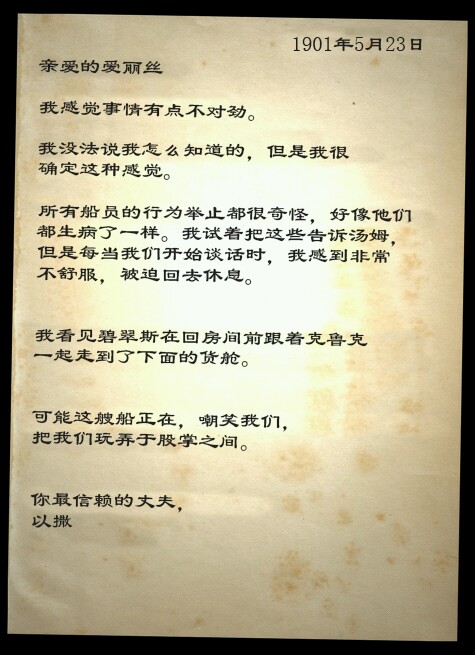 1901年5月23日
亲爱的爱丽丝
我感觉事情有点不对劲。
我没法说我怎么知道的，但是我很
确定这种感觉。
所有船员的行为举止都很奇怪，好像他们
都生病了一样。我试着把这些告诉汤姆，
但是每当我们开始谈话时，我感到非常
不舒服，被迫回去休息。
我看见碧翠斯在回房间前跟着克鲁克
一起走到了下面的货舱。
可能这艘船正在，嘲笑我们，
把我们玩弄于股掌之间。
你最信赖的丈夫，
以撒